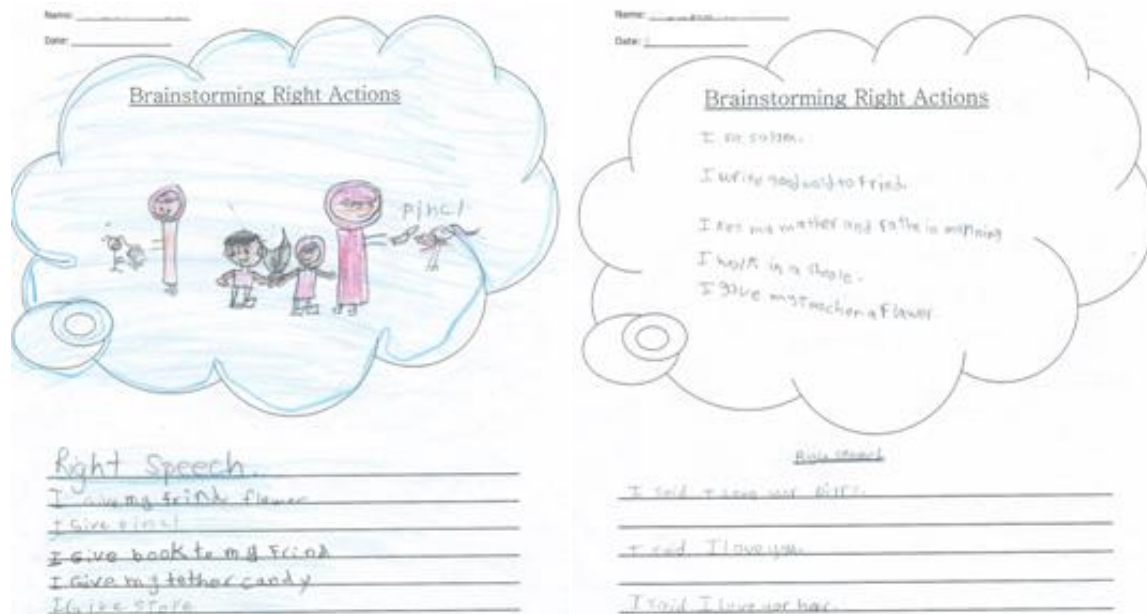 Name:
Date:
Brainstorming Right Actions
pincl
Right Speech.
I Give my frinds flawer
I Give pincl
I Give book to my Frind
I Give my tether candy
I Give store
Name:
Date:
Brainstorming Right Actions
I
I write good to Friend.
I my mather and Fathe in morning
I work in a
I gave my teacher a Flawer.
I said I love your
I said I love you.
I said I love yor hair.